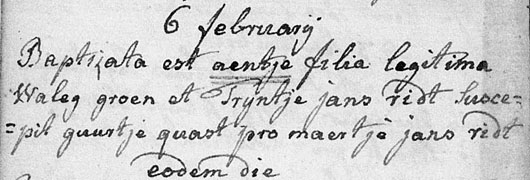 6 februarij
Baptizata est aentje filia legitima
Waleg groen et Tryntje jans ridt susce=
=pit guurtje quast pro maertje jans ridt
eodem die